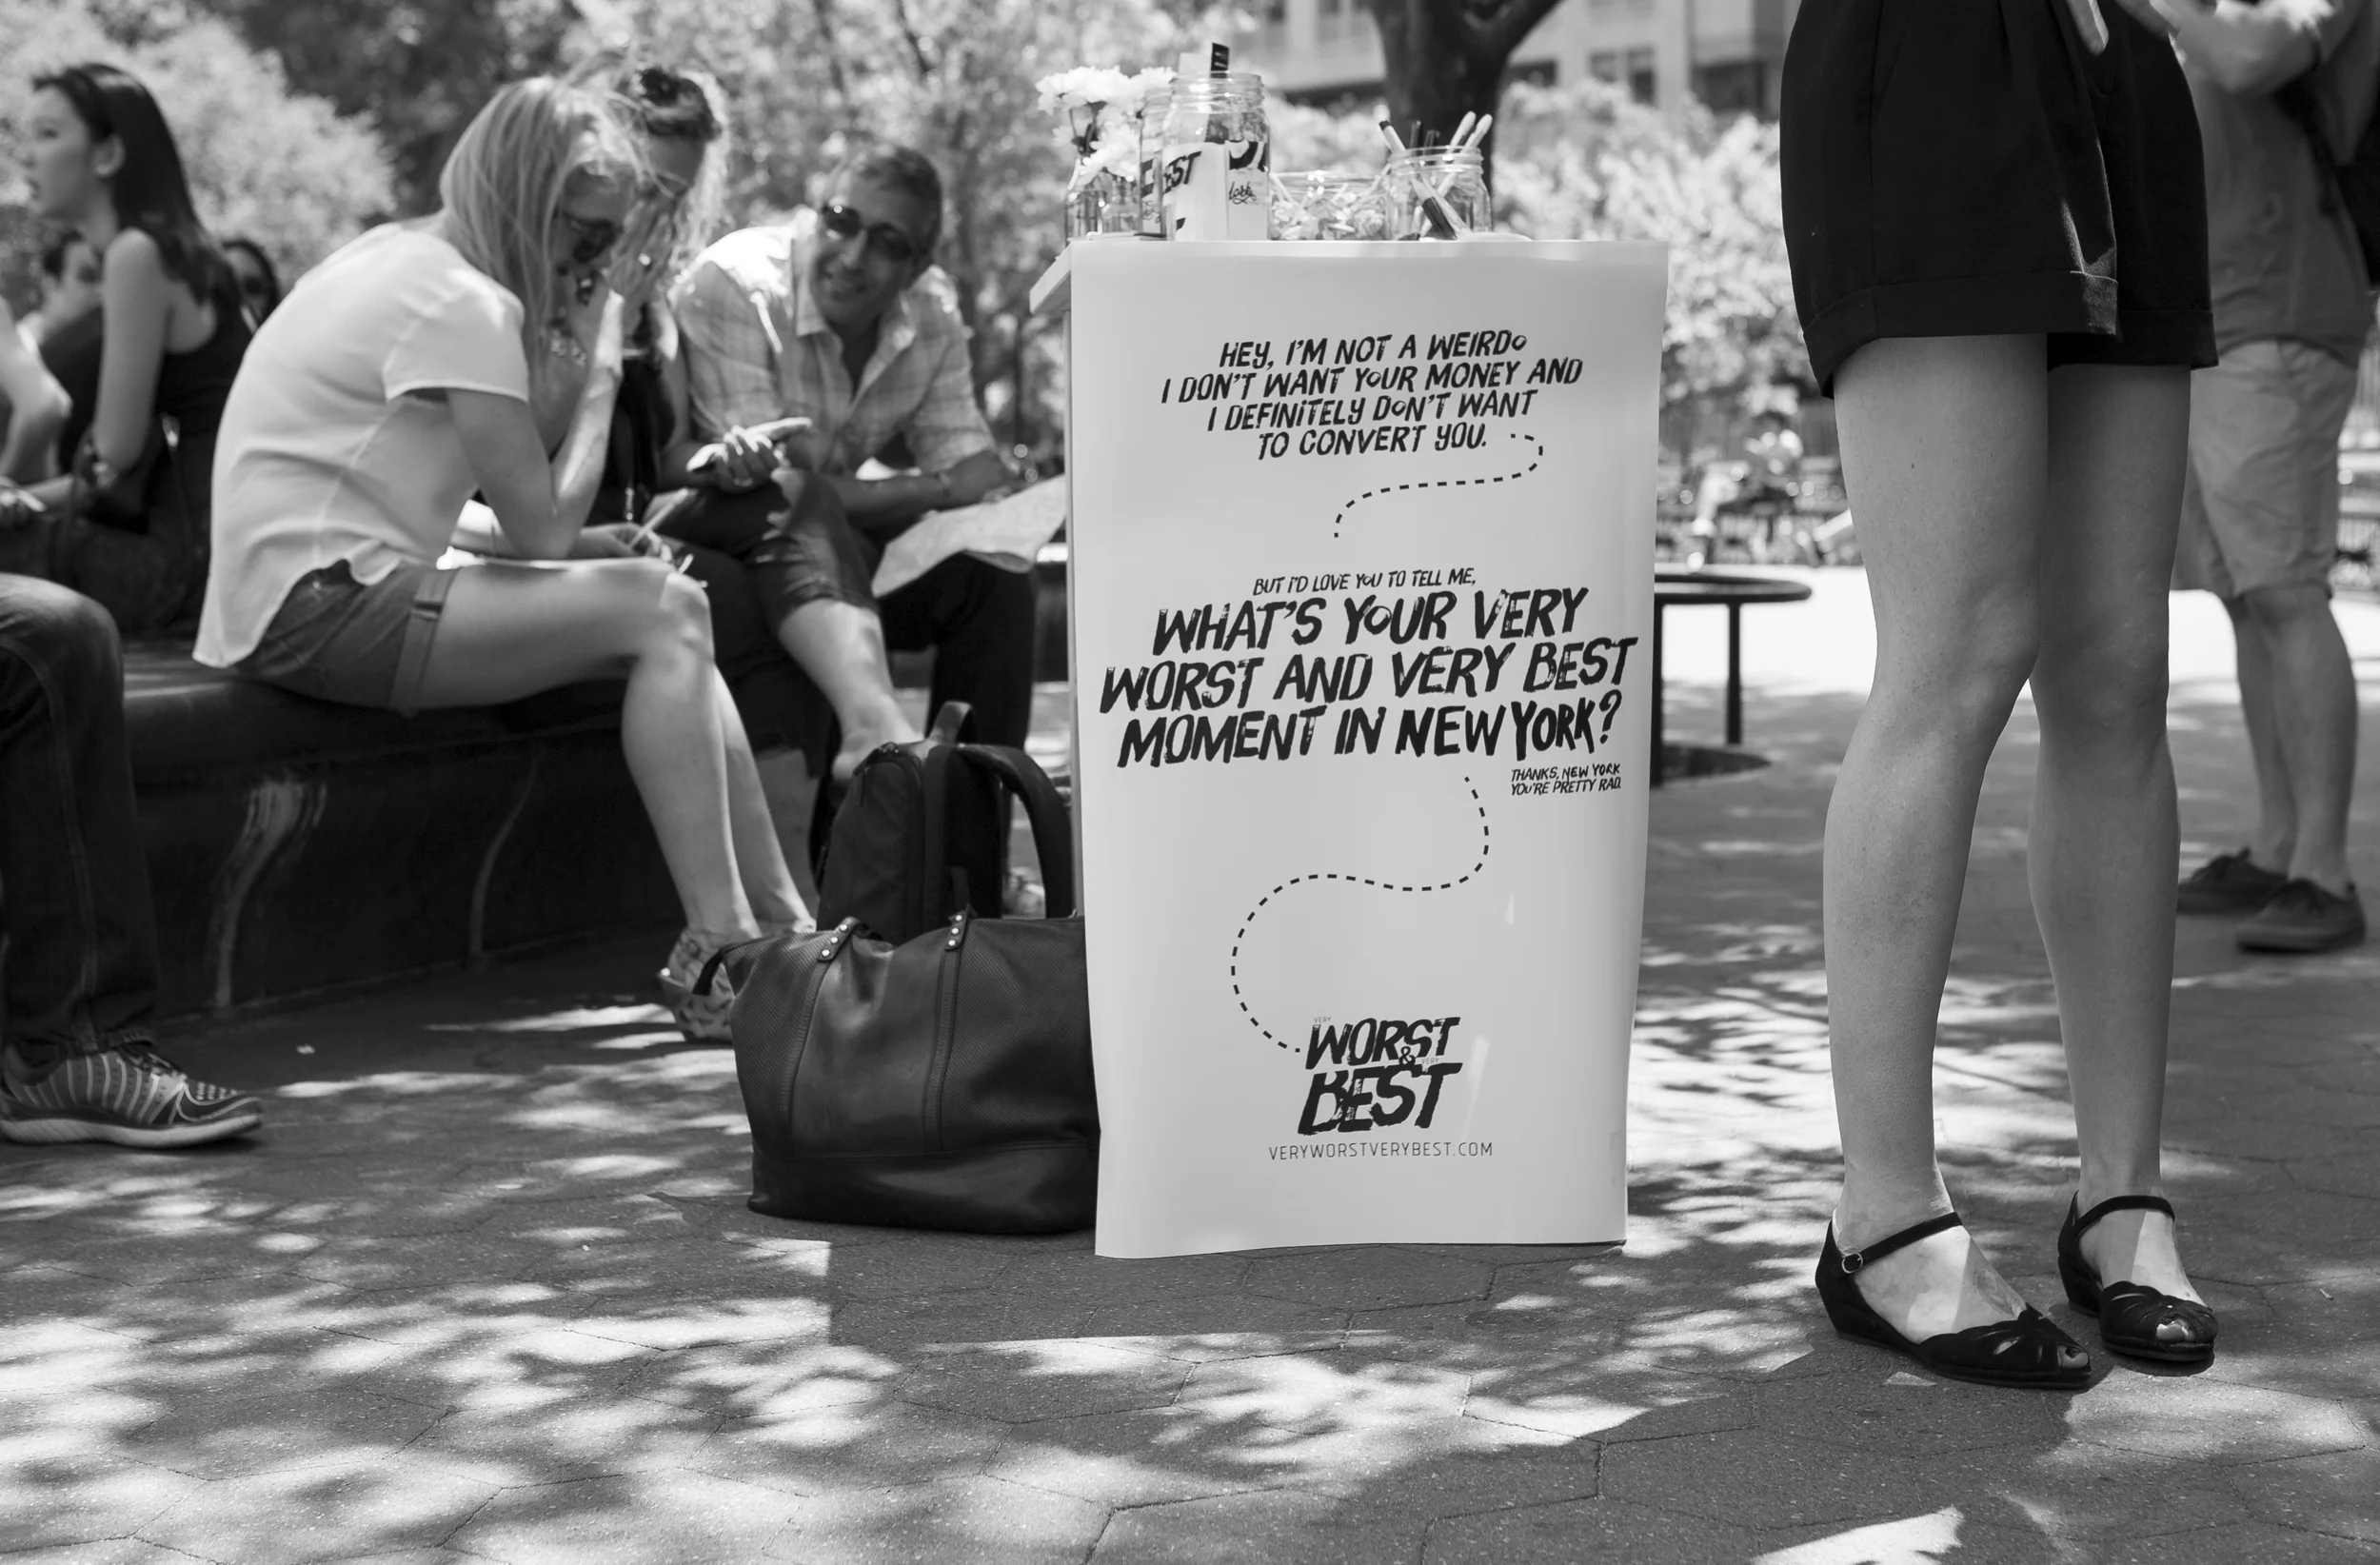 EST
HEY, I'M NOT A WEIRDO
I DON'T WANT YOUR MONEY AND
I DEFINITELY DON'T WANT
TO CONVERT YOU.
BUT I'D LOVE YOU TO TELL ME,
WHAT'S YOUR VERY
WORST AND VERY BEST
MOMENT IN NEW YORK?
THANKS, NEW YORK
YOU'RE PRETTY RAD.
VERY
WORST
& VERY
BEST
VERYWORSTVERYBEST.COM